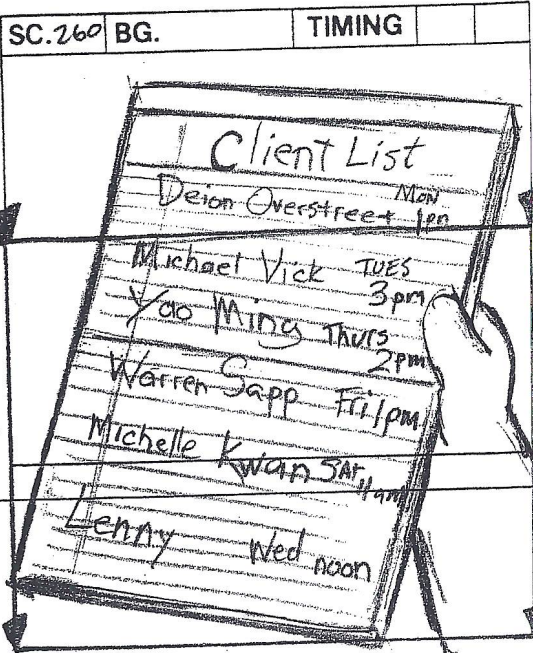 SC.260 BG. TIMING
Client List
Deion Overstreet Mon 1pm
Michael Vick TUES 3pm
Yao Ming Thurs 2pm
Warren Sapp Fri 1pm
Michelle Kwan SAt 11am
Lenny Wed noon